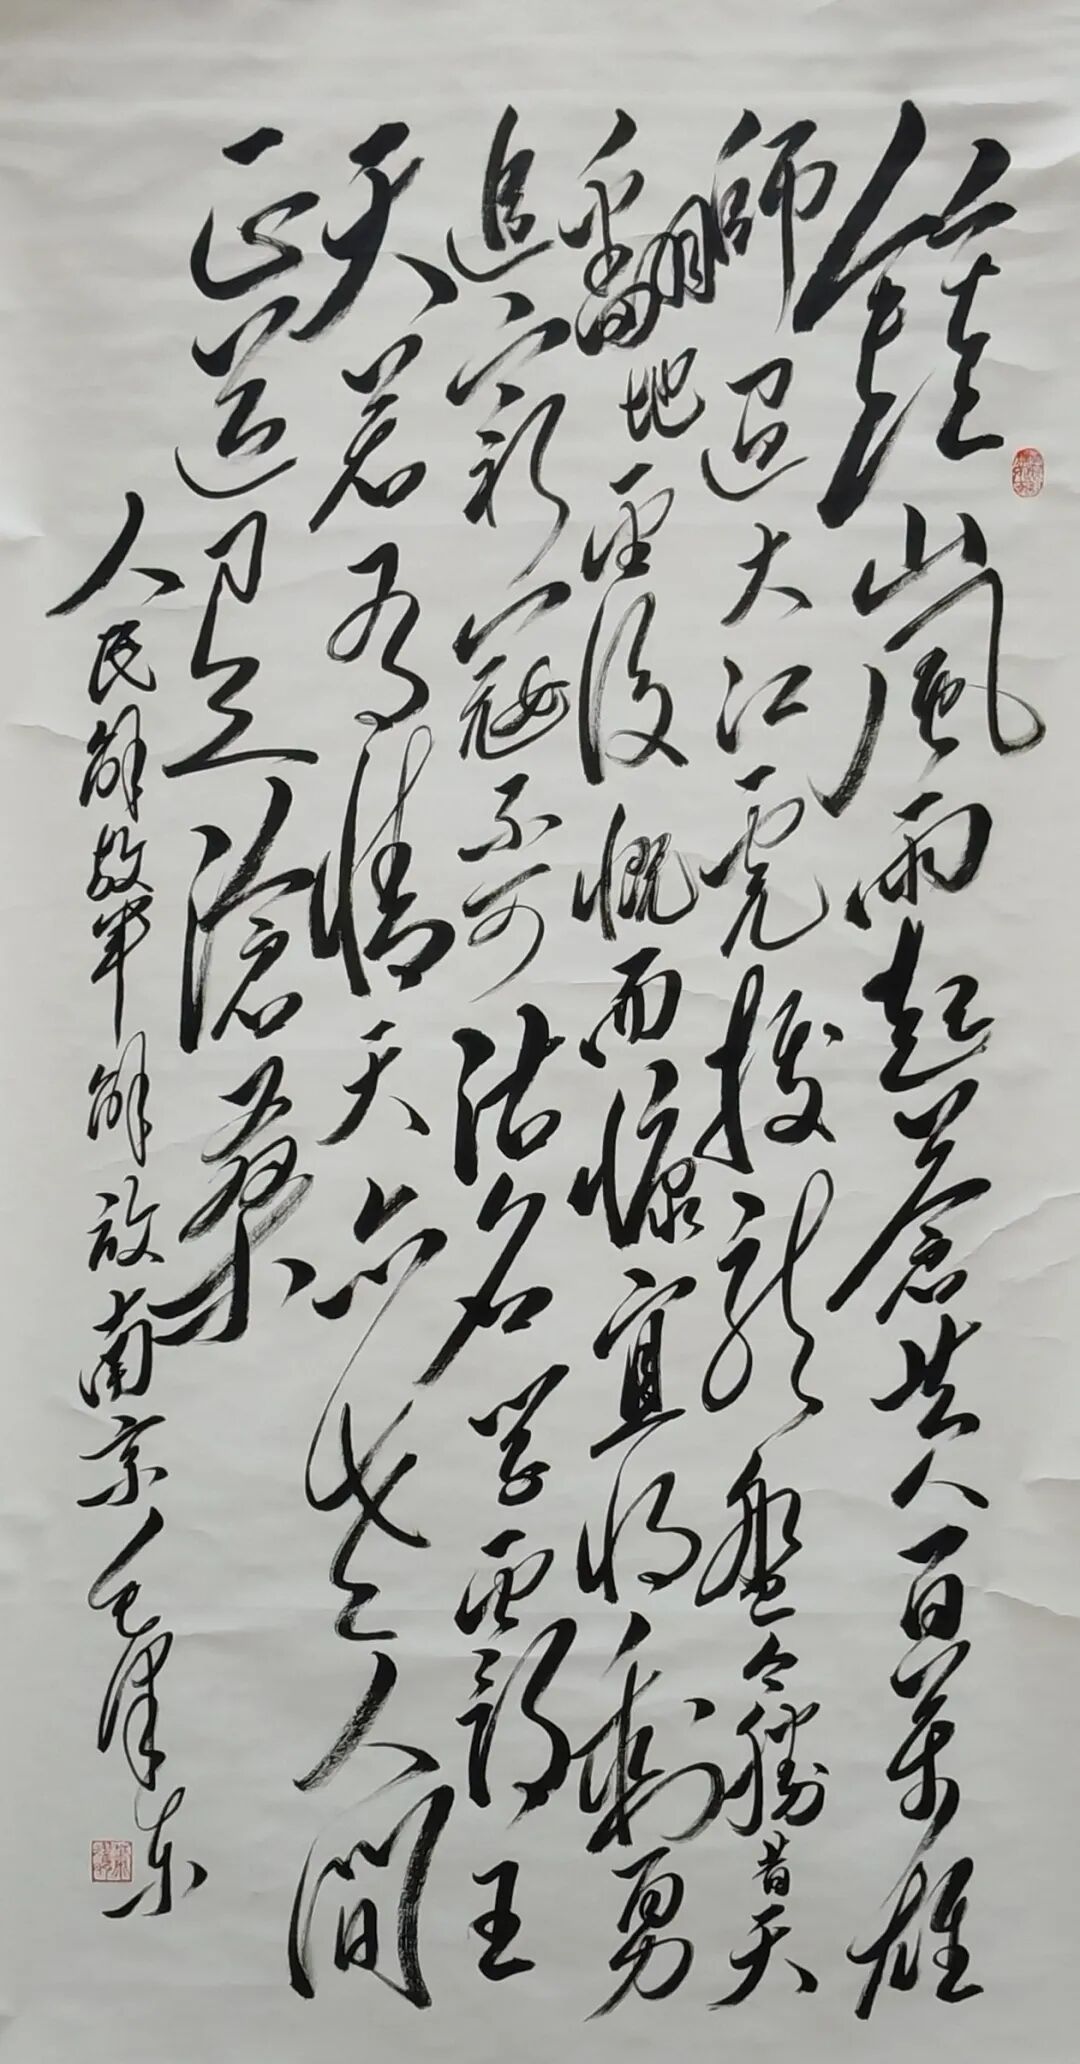 鐘山風雨起蒼黃百萬雄
師過大江虎踞龍盤今勝昔天
翻地覆慨而慷宜將剩勇
追窮寇不可沽名學霸王
天若有情天亦老人間
正道是滄桑
人民解放軍解放南京毛澤东